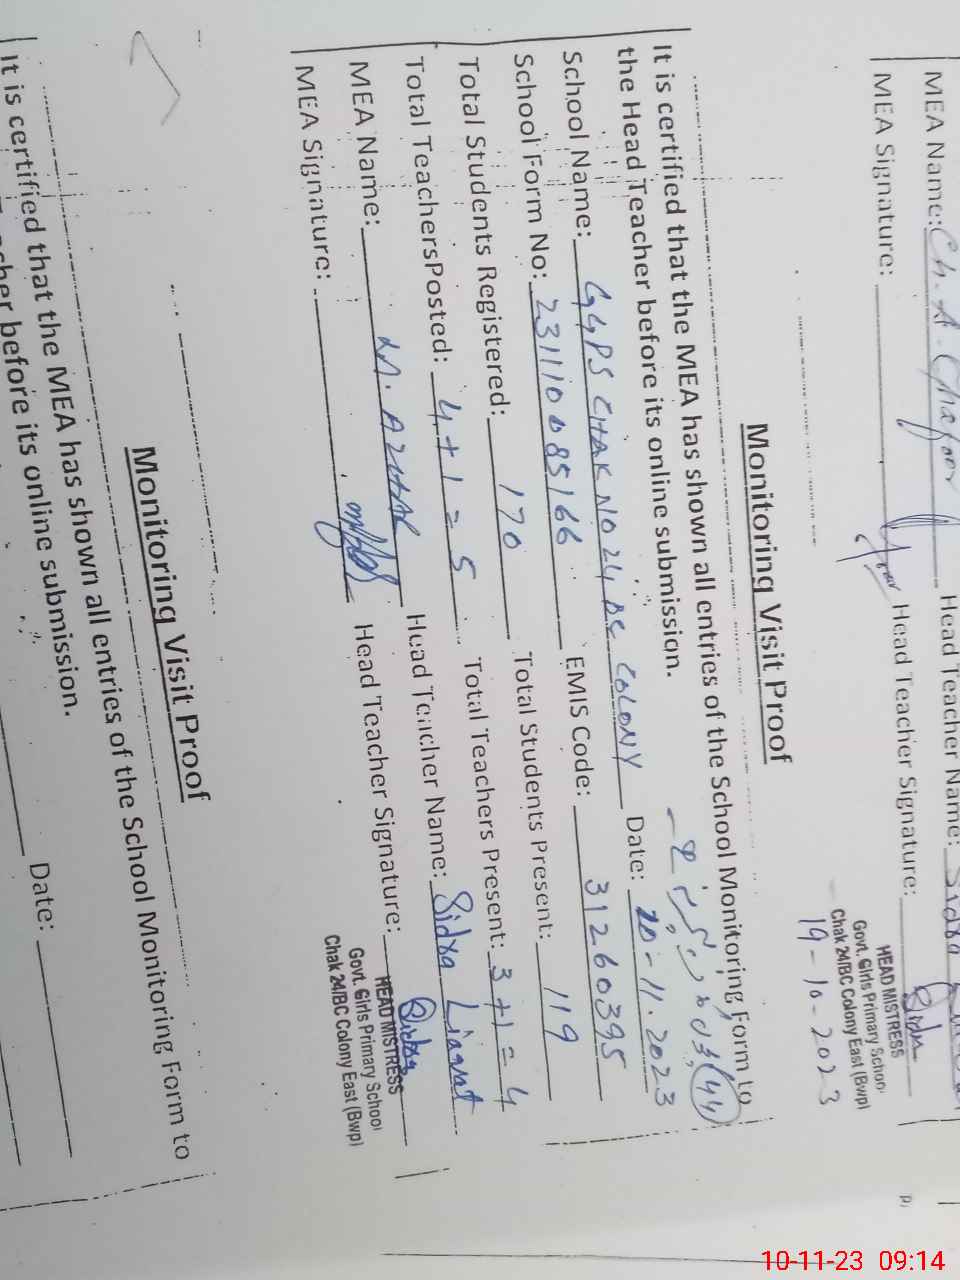 MEA Name: Ch. A. Ghafoor Head Teacher Name: Sidra
MEA Signature: Head Teacher Signature: Sidra
HEAD MISTRESS
Govt. Girls Primary School
Chak 24/BC Colony East (Bwp)
19-10-2023
Monitoring Visit Proof
It is certified that the MEA has shown all entries of the School Monitoring Form to
the Head Teacher before its online submission.
School Name: GGPS CHAK NO 24 BC COLONY Date: 20-11-2023
School Form No: EMIS Code: 31260395
Total Students Registered: 170 Total Students Present: 119
Total TeachersPosted: 4+1=5 Total Teachers Present: 3+1=4
MEA Name: M. AZHAR Head Teacher Name: Sidra Liaqat
MEA Signature: Head Teacher Signature: Sidra
HEAD MISTRESS
Govt. Girls Primary School
Chak 24/BC Colony East (Bwp)
Monitoring Visit Proof
It is certified that the MEA has shown all entries of the School Monitoring Form to
before its online submission.
Date:
10-11-23 09:14